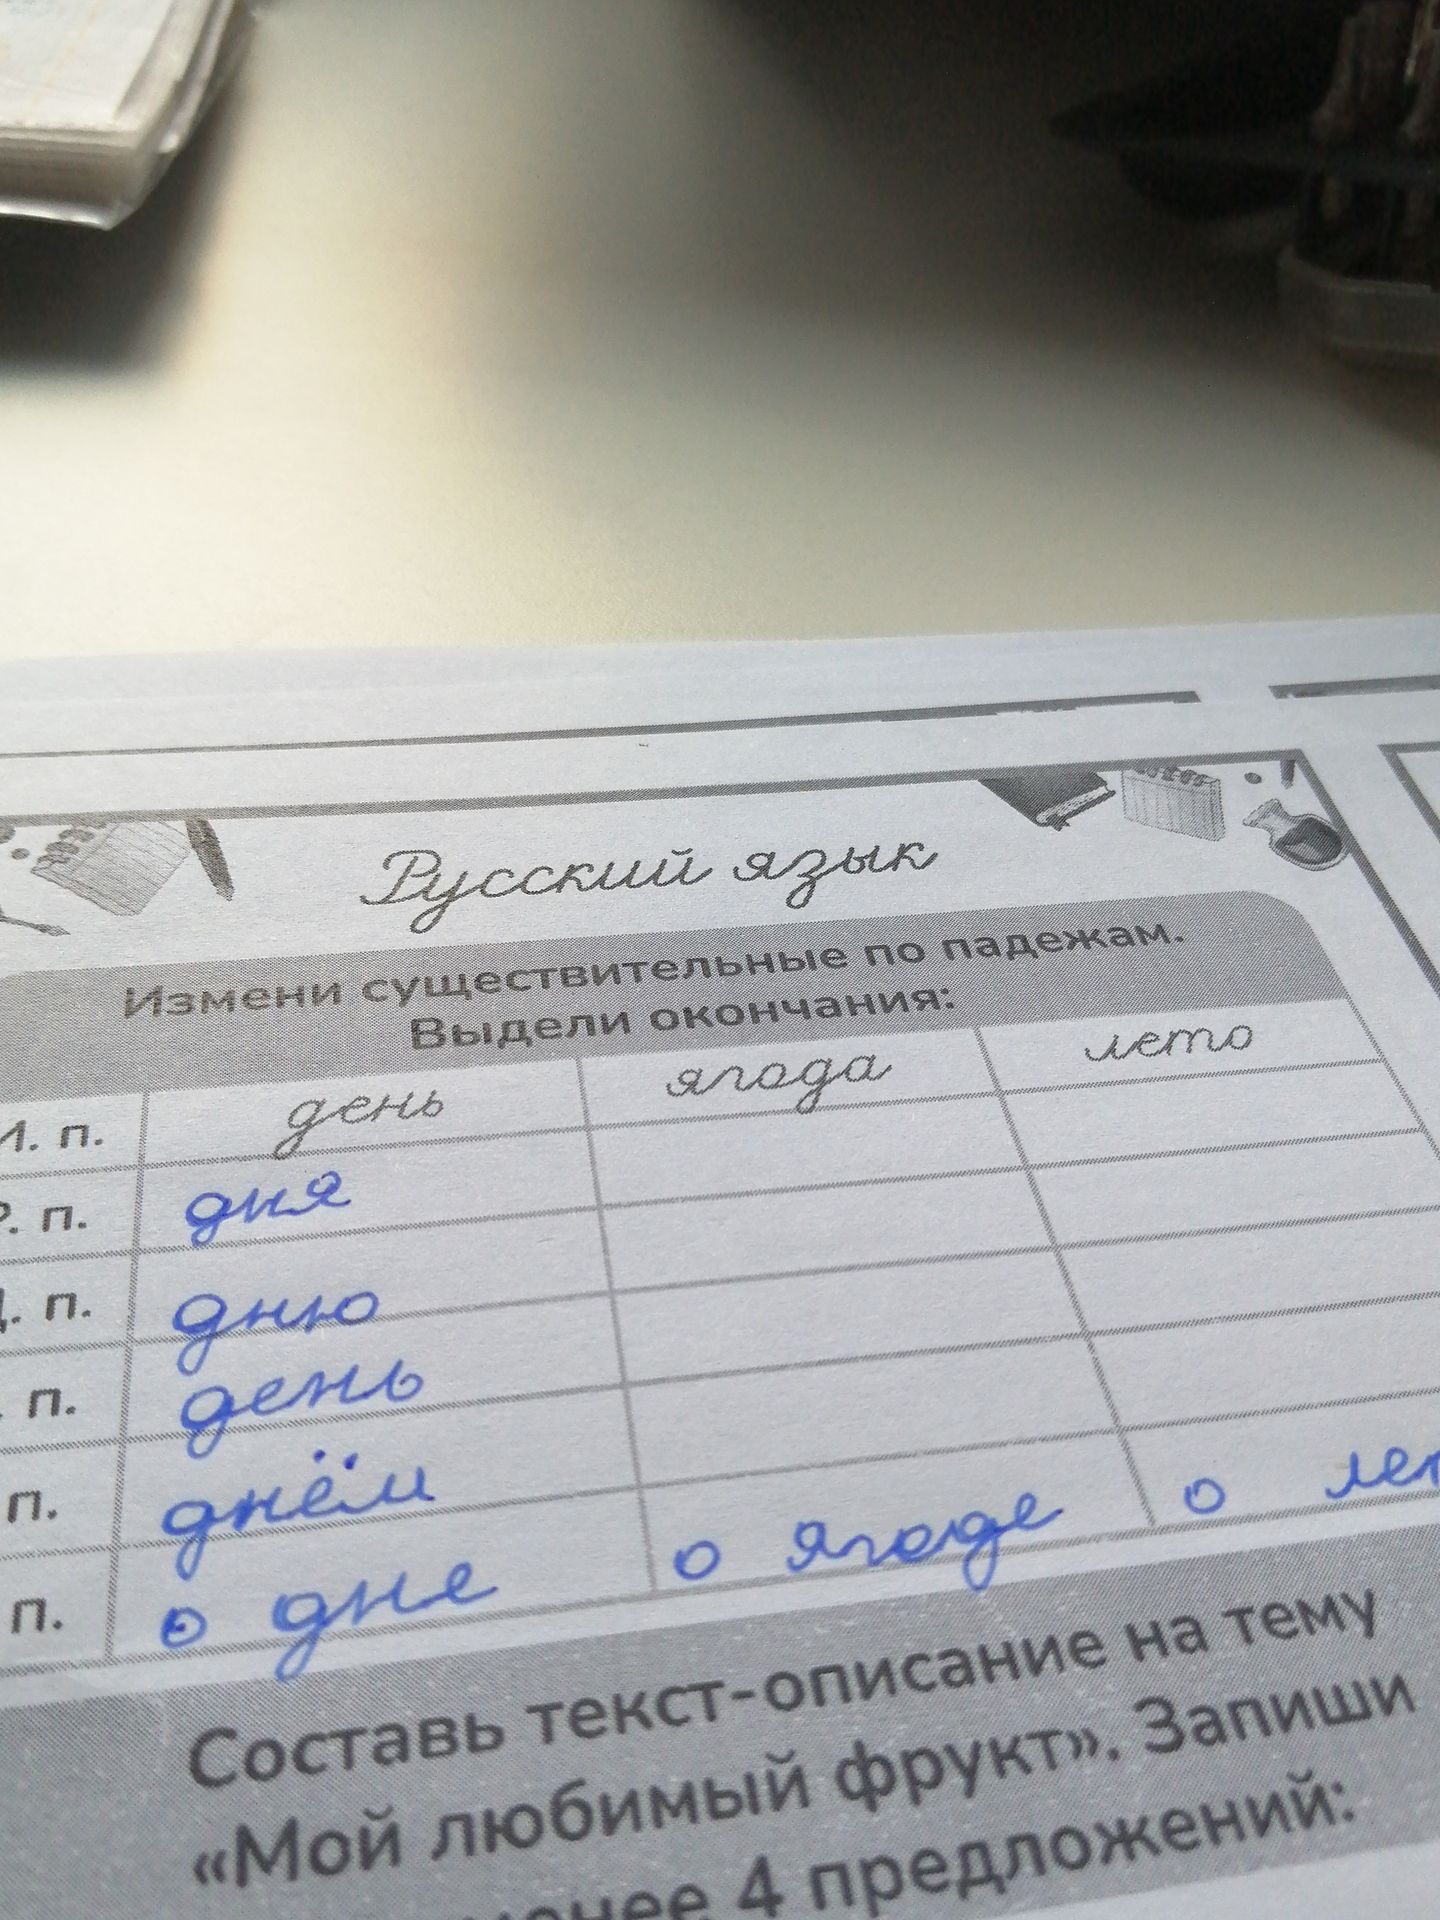 Русский язык
Измени существительные по падежам.
Выдели окончания:
И. п. день ягода лето
Р. п. дня
Д. п. дню
п. день
п. днём
п. о дне о ягоде о лет
Составь текст-описание на тему
«Мой любимый фрукт». Запиши
менее 4 предложений: